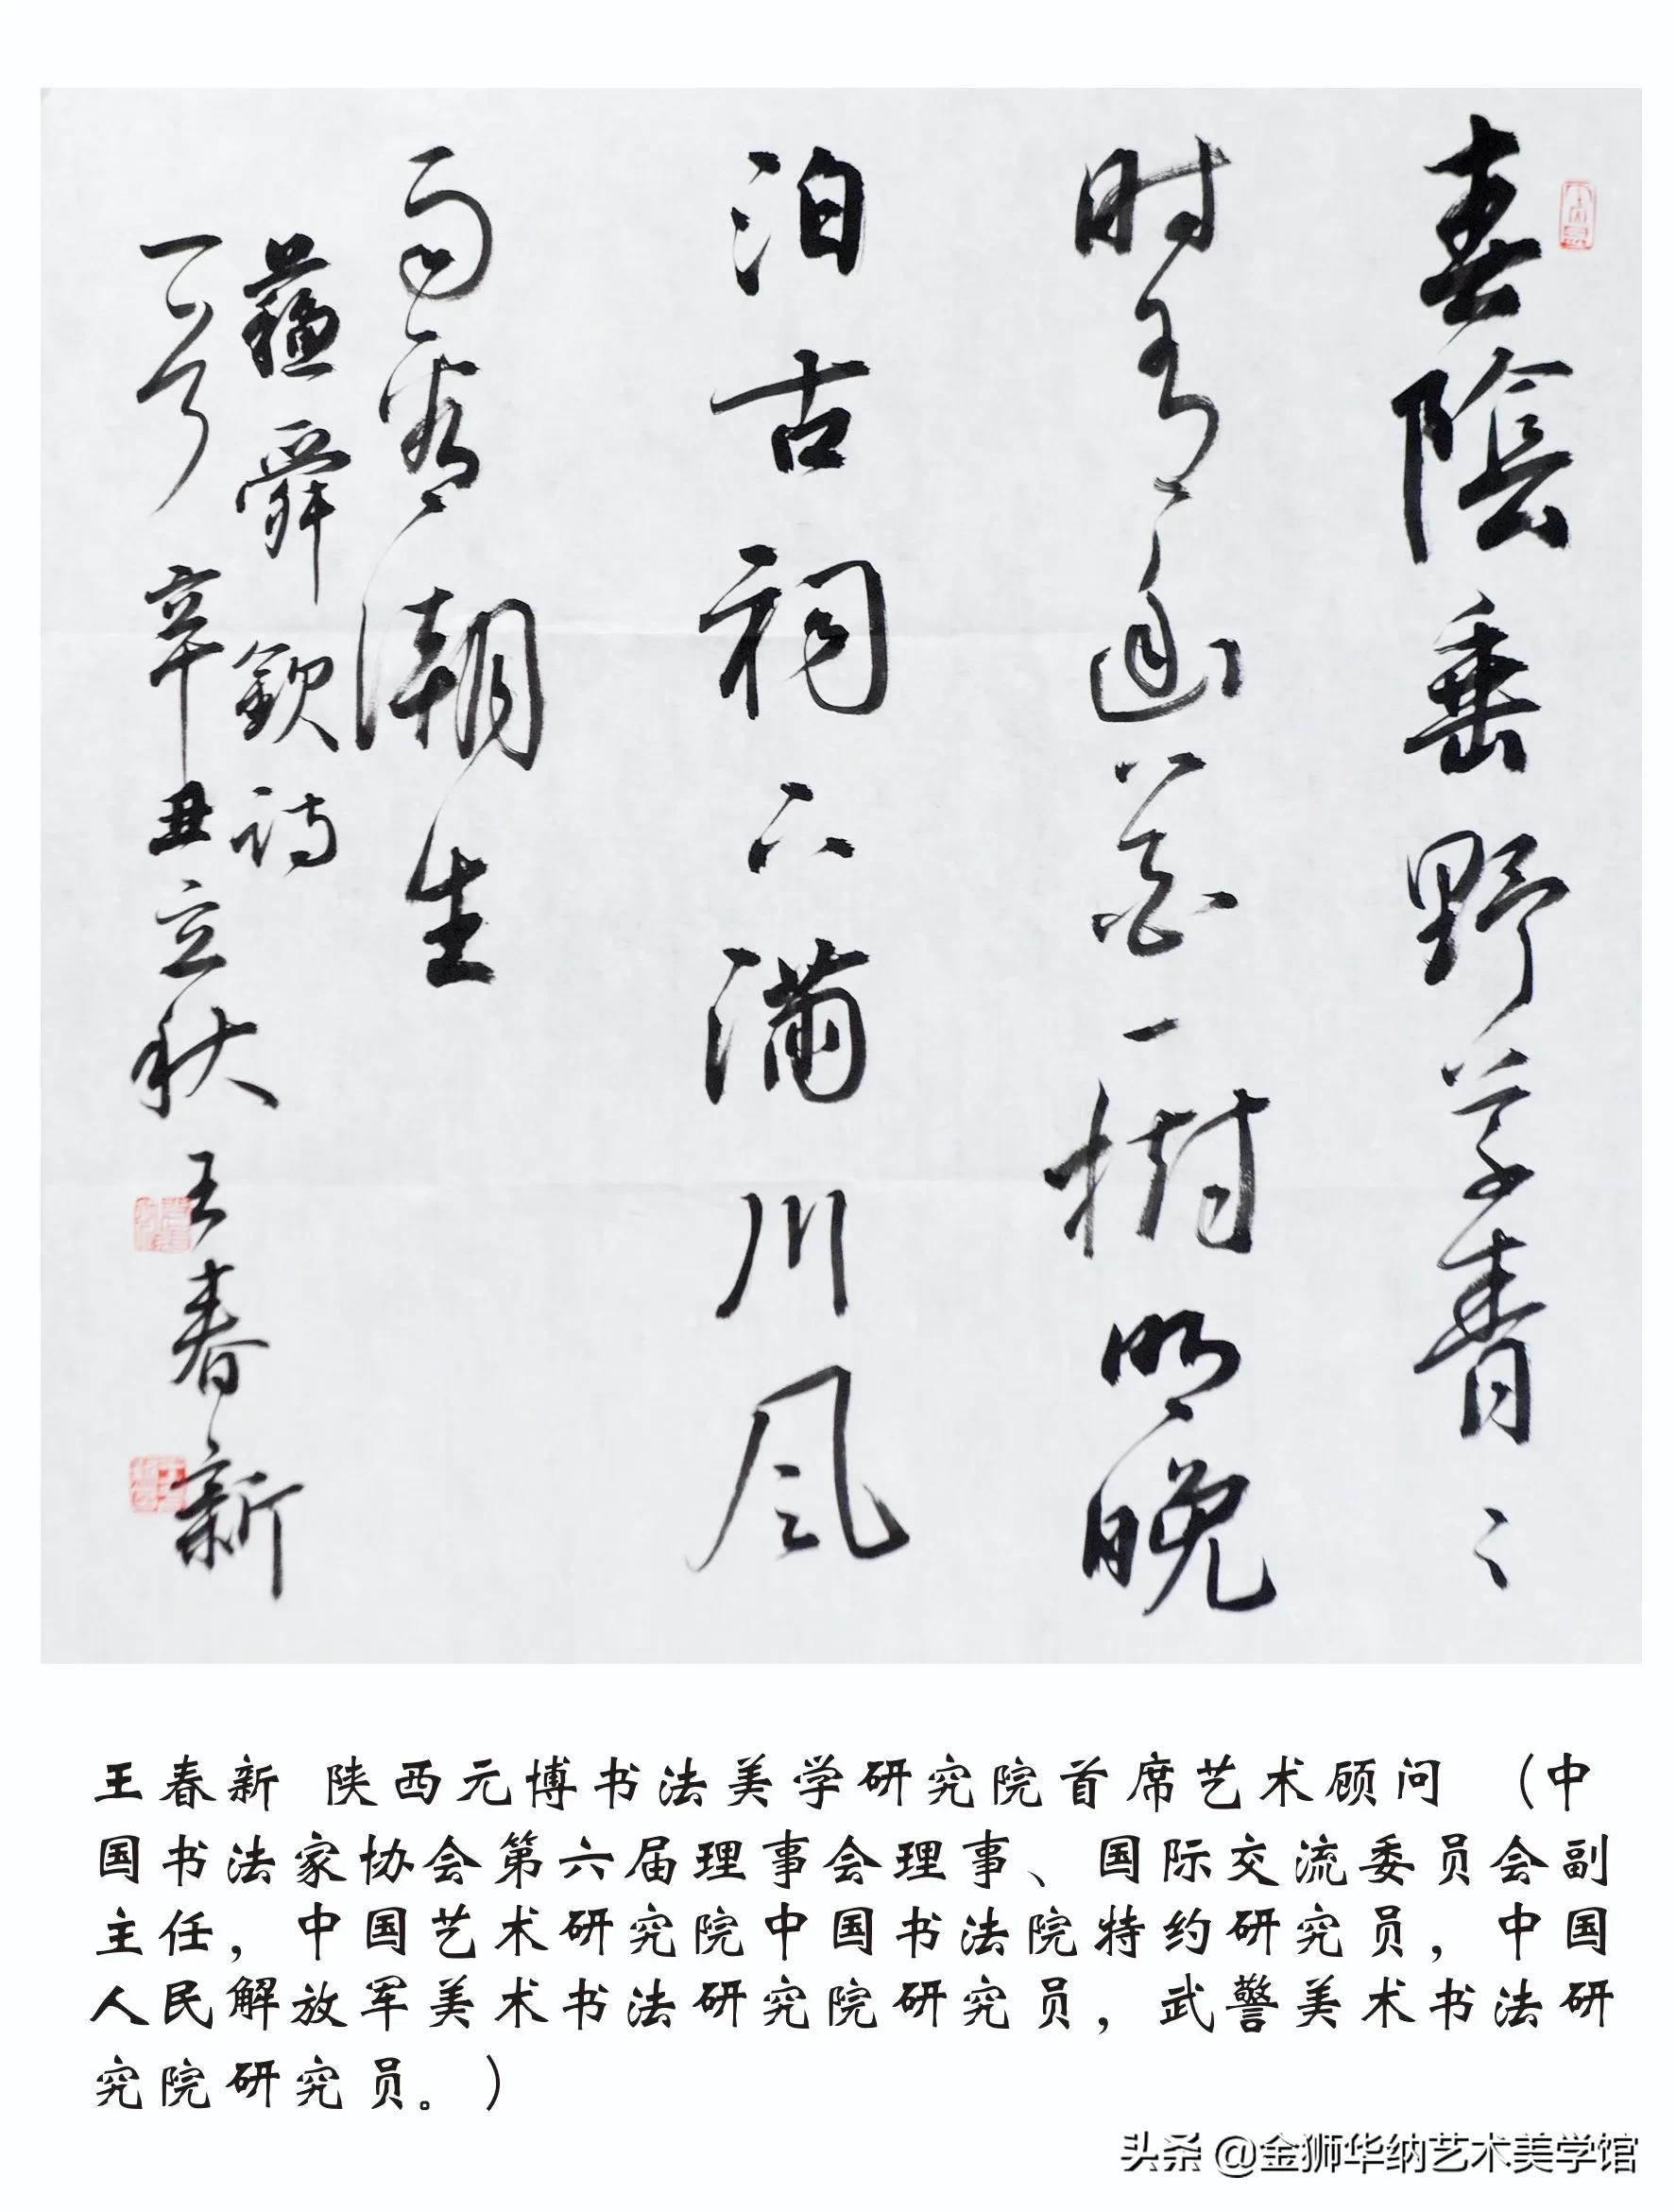 春陰垂野草青々
时有幽花一樹明晚
泊古祠下滿川风
雨看潮生
蘇舜欽诗
一首 辛丑立秋 王春新
王春新 陕西元博书法美学研究院首席艺术顾问 （中
国书法家协会第六届理事会理事、国际交流委员会副
主任，中国艺术研究院中国书法院特约研究员，中国
人民解放军美术书法研究院研究员，武警美术书法研
究院研究员。）
头条 @金狮华纳艺术美学馆